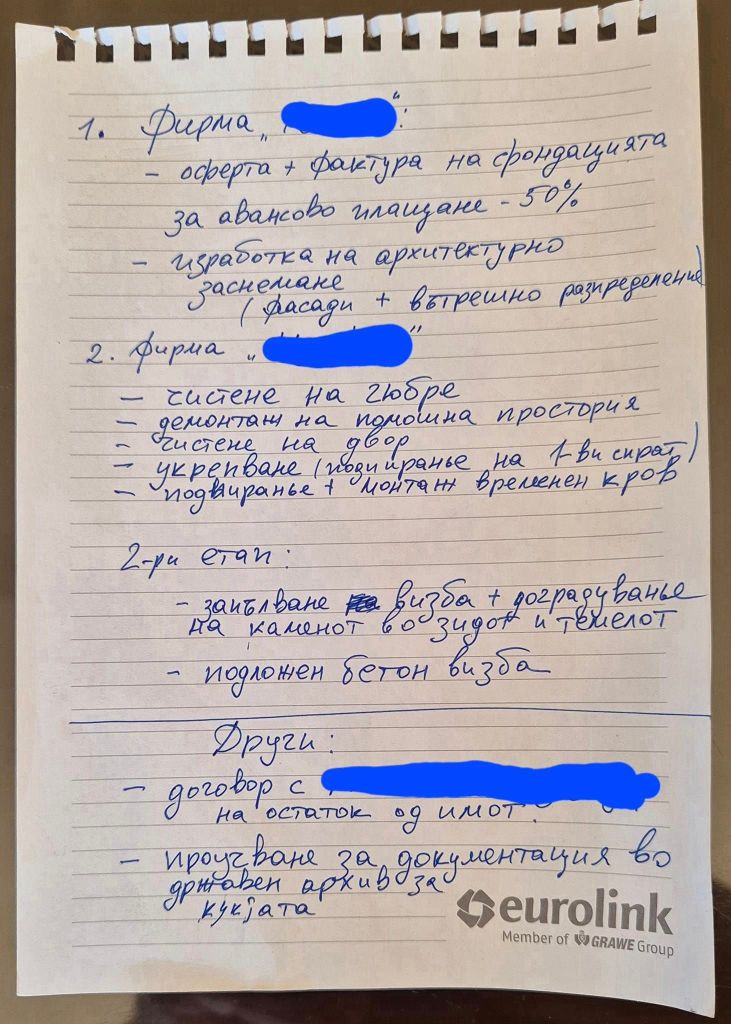 1. Фирма „ “:
- оферта + фактура на фондацијята
за авансово плащане - 50%
- изработка на архитектурно
заснемане
(фасади + вътрешно разпределение)
2. Фирма „ “
- чистене на гюбре
- демонтаж на помошна простория
- чистене на двор
- укрепване (подпиранье на 1-ви спрат)
- подвиранье + монтаж временен кров
2-ри етап:
- запълване визба + доградуванье
на каменот во зидот и темелот
- подложен бетон визба
Други:
- договор с
на остаток од имот.
- проучване за документация во
државен архив за
куќјата
eurolink
Member of GRAWE Group